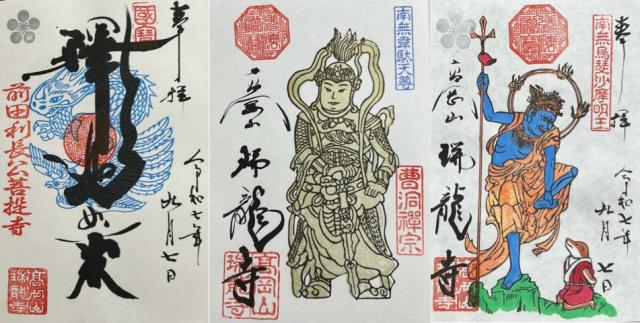 奉拝
國寶
釋迦如来
前田利長公菩提寺
令和七年
九月七日
高岡山
瑞龍寺
南無韋駄天尊
高岡山
瑞龍寺
曹洞禪宗
高岡山
瑞龍寺
奉拝
南無烏瑟沙摩明王
高岡山
瑞龍寺
令和七年
九月七日